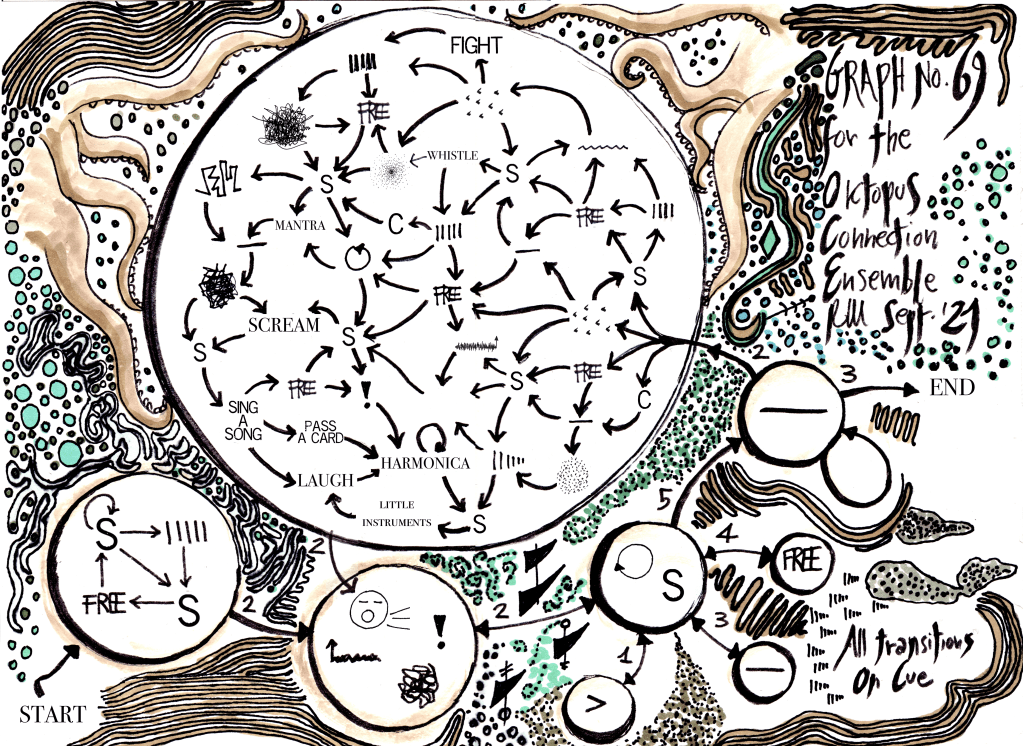 GRAPH No. 69
for the
Oktopus
Connection
Ensemble
RM Sept. '21
FIGHT
FREE
WHISTLE
S
S
MANTRA
C
FREE
S
FREE
SCREAM
S
S
FREE
FREE
S
C
SING
A
SONG
PASS
A CARD
!
HARMONICA
LAUGH
LITTLE
INSTRUMENTS
S
2
3
END
S
FREE
S
2
2
START
!
2
5
S
4
FREE
3
1
>
All transitions
On Cue